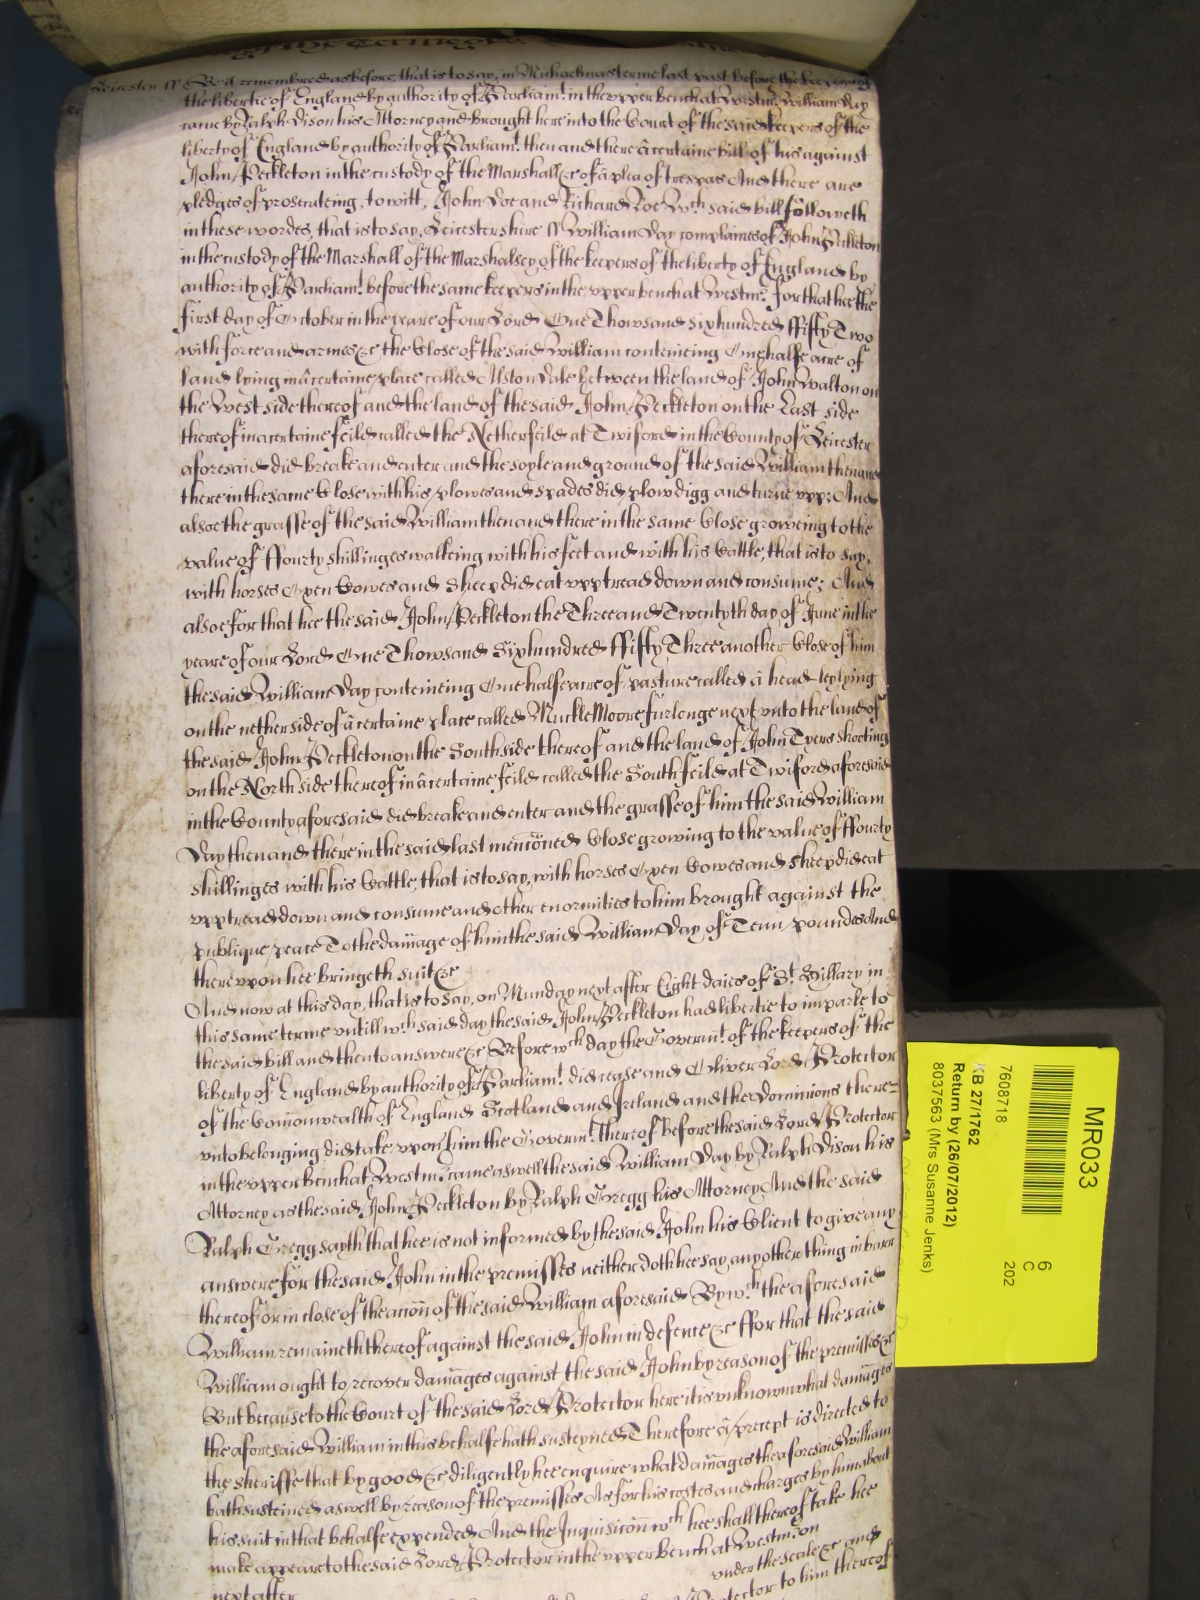 Leicester ss Be it remembred as before, that is to say, in Michaelmas terme last past before the keepers of
the libertie of England by authority of Parliamt. in the vpper bench at Westmr. William Day
came by Ralph Dison his Attorney and brought here into the Court of the said keepers of the
liberty of England by authority of Parliamt. then and there a certaine bill of his against
John Peckleton in the custody of the Marshall &c of a plea of trespas And there are
pledges of prosecuteing, to witt, John Doe and Richard Roe Wch. said bill followeth
in these wordes, that is to say, Leicestershire ss William Day complaines of John Peckleton
in the custody of the Marshall of the Marshalsey of the keepers of the liberty of England by
authority of Parliamt. before the same keepers in the vpper bench at Westmr. for that hee the
first day of October in the yeare of our Lord One Thowsand six hundred ffifty Two
with force and armes &c the Close of the said William conteineing One halfe acre of
land lying in a certaine place called Alston dale between the land of John Walton on
the West side thereof and the land of the said John Peckleton on the East side
thereof in a certaine feild called the Netherfeild at Twiford in the County of Leicester
aforesaid did breake and enter and the soyle and ground of the said William then and
there in the same Close with his plowes and spades did plow digg and turne vpp: And
alsoe the grasse of the said William then and there in the same Close groweing to the
value of ffourty shillinges walkeing with his feet and with his Cattle, that is to say,
with horses Oxen Cowes and Sheep did eat vpp tread down and consume; And
alsoe for that hee the said John Peckleton the Three and Twentyth day of June in the
yeare of our Lord One Thowsand Six hundred ffifty Three another Close of him
the said William Day conteineing One halfe acre of pasture called a head-ley lying
on the netherside of a certaine place called Muckle Moore furlonge next vnto the land of
the said John Peckleton on the South side thereof and the land of John Tyers shooting
on the North side thereof in a certaine feild called the South feild at Twiford aforesaid
in the County aforesaid did breake and enter and the grasse of him the said William
Day then and there in the said last mencõned Close growing to the value of ffourty
shillinges with his Cattle, that is to say, with horses Oxen Cowes and sheep did eat
vpp tread down and consume and other enormities to him brought against the
publique peace To the dam̃age of him the said William Day of Tenn poundes And
therevpon hee bringeth suit &c
And now at this day, that is to say, on Munday next after Eight daies of St. Hillary in
this same terme vntill wch. said day the said John Peckleton had libertie to imparle to
the said bill and then to answere &c Before wch day the Governmt. of the keepers of the
liberty of England by authority of Parliamt. did cease and Oliver Lord Protector
of the Com̃onwealth of England Scotland and Ireland and the Dominions there-
vnto belonging did take vpon him the Governmt. thereof before the said Lord Protector
in the vpper bench at Westmr. came aswell the said William Day by Ralph Dison his
Attorney as the said John Peckleton by Ralph Gregg his Attorney And the said
Ralph Gregg sayth that hee is not informed by the said John his Client to give any
answere for the said John in the premisses neither doth hee say any other thing in barr
thereof or in close of the acc̃on of the said William aforesaid By wch. the aforesaid
William remaineth thereof against the said John in defence &c ffor that the said
William ought to recover dam̃ages against the said John by reason of the premisses &c
But because to the Court of the said Lord Protector here it is vnknown what damages
the aforesaid William in this behalfe hath susteyned Therefore a precept is directed to
the sheriffe that by good &c diligently hee enquire what dam̃ages the aforesaid William
hath susteined aswell by reason of the premisses As for his costes and charges by him about
his suit in that behalfe expended And the Inquisic̃on wch hee shall thereof take hee
make appeare to the said Lord Protector in the vpper bench at Westmr. on
next after under the seale &c and
Protector to him thereof
MR033
6
C
202
7608718
KB 27/1762
Return by (26/07/2012)
8037563 (Mrs Susanne Jenks)